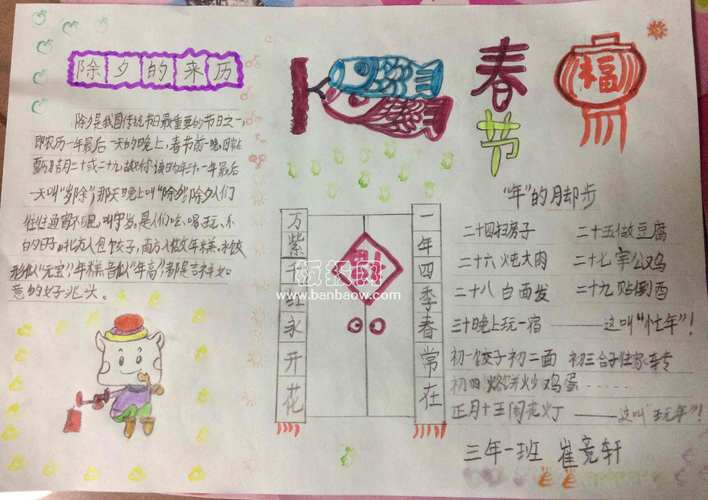 除夕的来历
除夕是我国传统节日最重要的节日之一,
即农历一年最后一天的晚上,春节前一晚,
月二十九,故称 该日的 年三十.一年最后
一天叫“岁除”,那天晚上叫“除夕”除夕人们
往往通宵不眠,叫守岁,是人们吃、喝、玩、
北方人包饺子,南方人做年糕.水饺
形似“元宝”,年糕音似“年高”,都是吉祥如
意的好兆头.
春节
福
一年四季春常在
万紫千红永开花
板报网
www.banbaow.com
“年”的脚步
二十四扫房子 二十五做豆腐
二十六炖大肉 二十七宰公鸡
二十八白面发 二十九贴倒酉
三十晚上玩一宿——这叫“忙年”!
初一饺子初二面 初三合子往家转
初四烙饼炒鸡蛋……
正月十五闹花灯——这叫“玩年”!
三年一班 崔竞轩